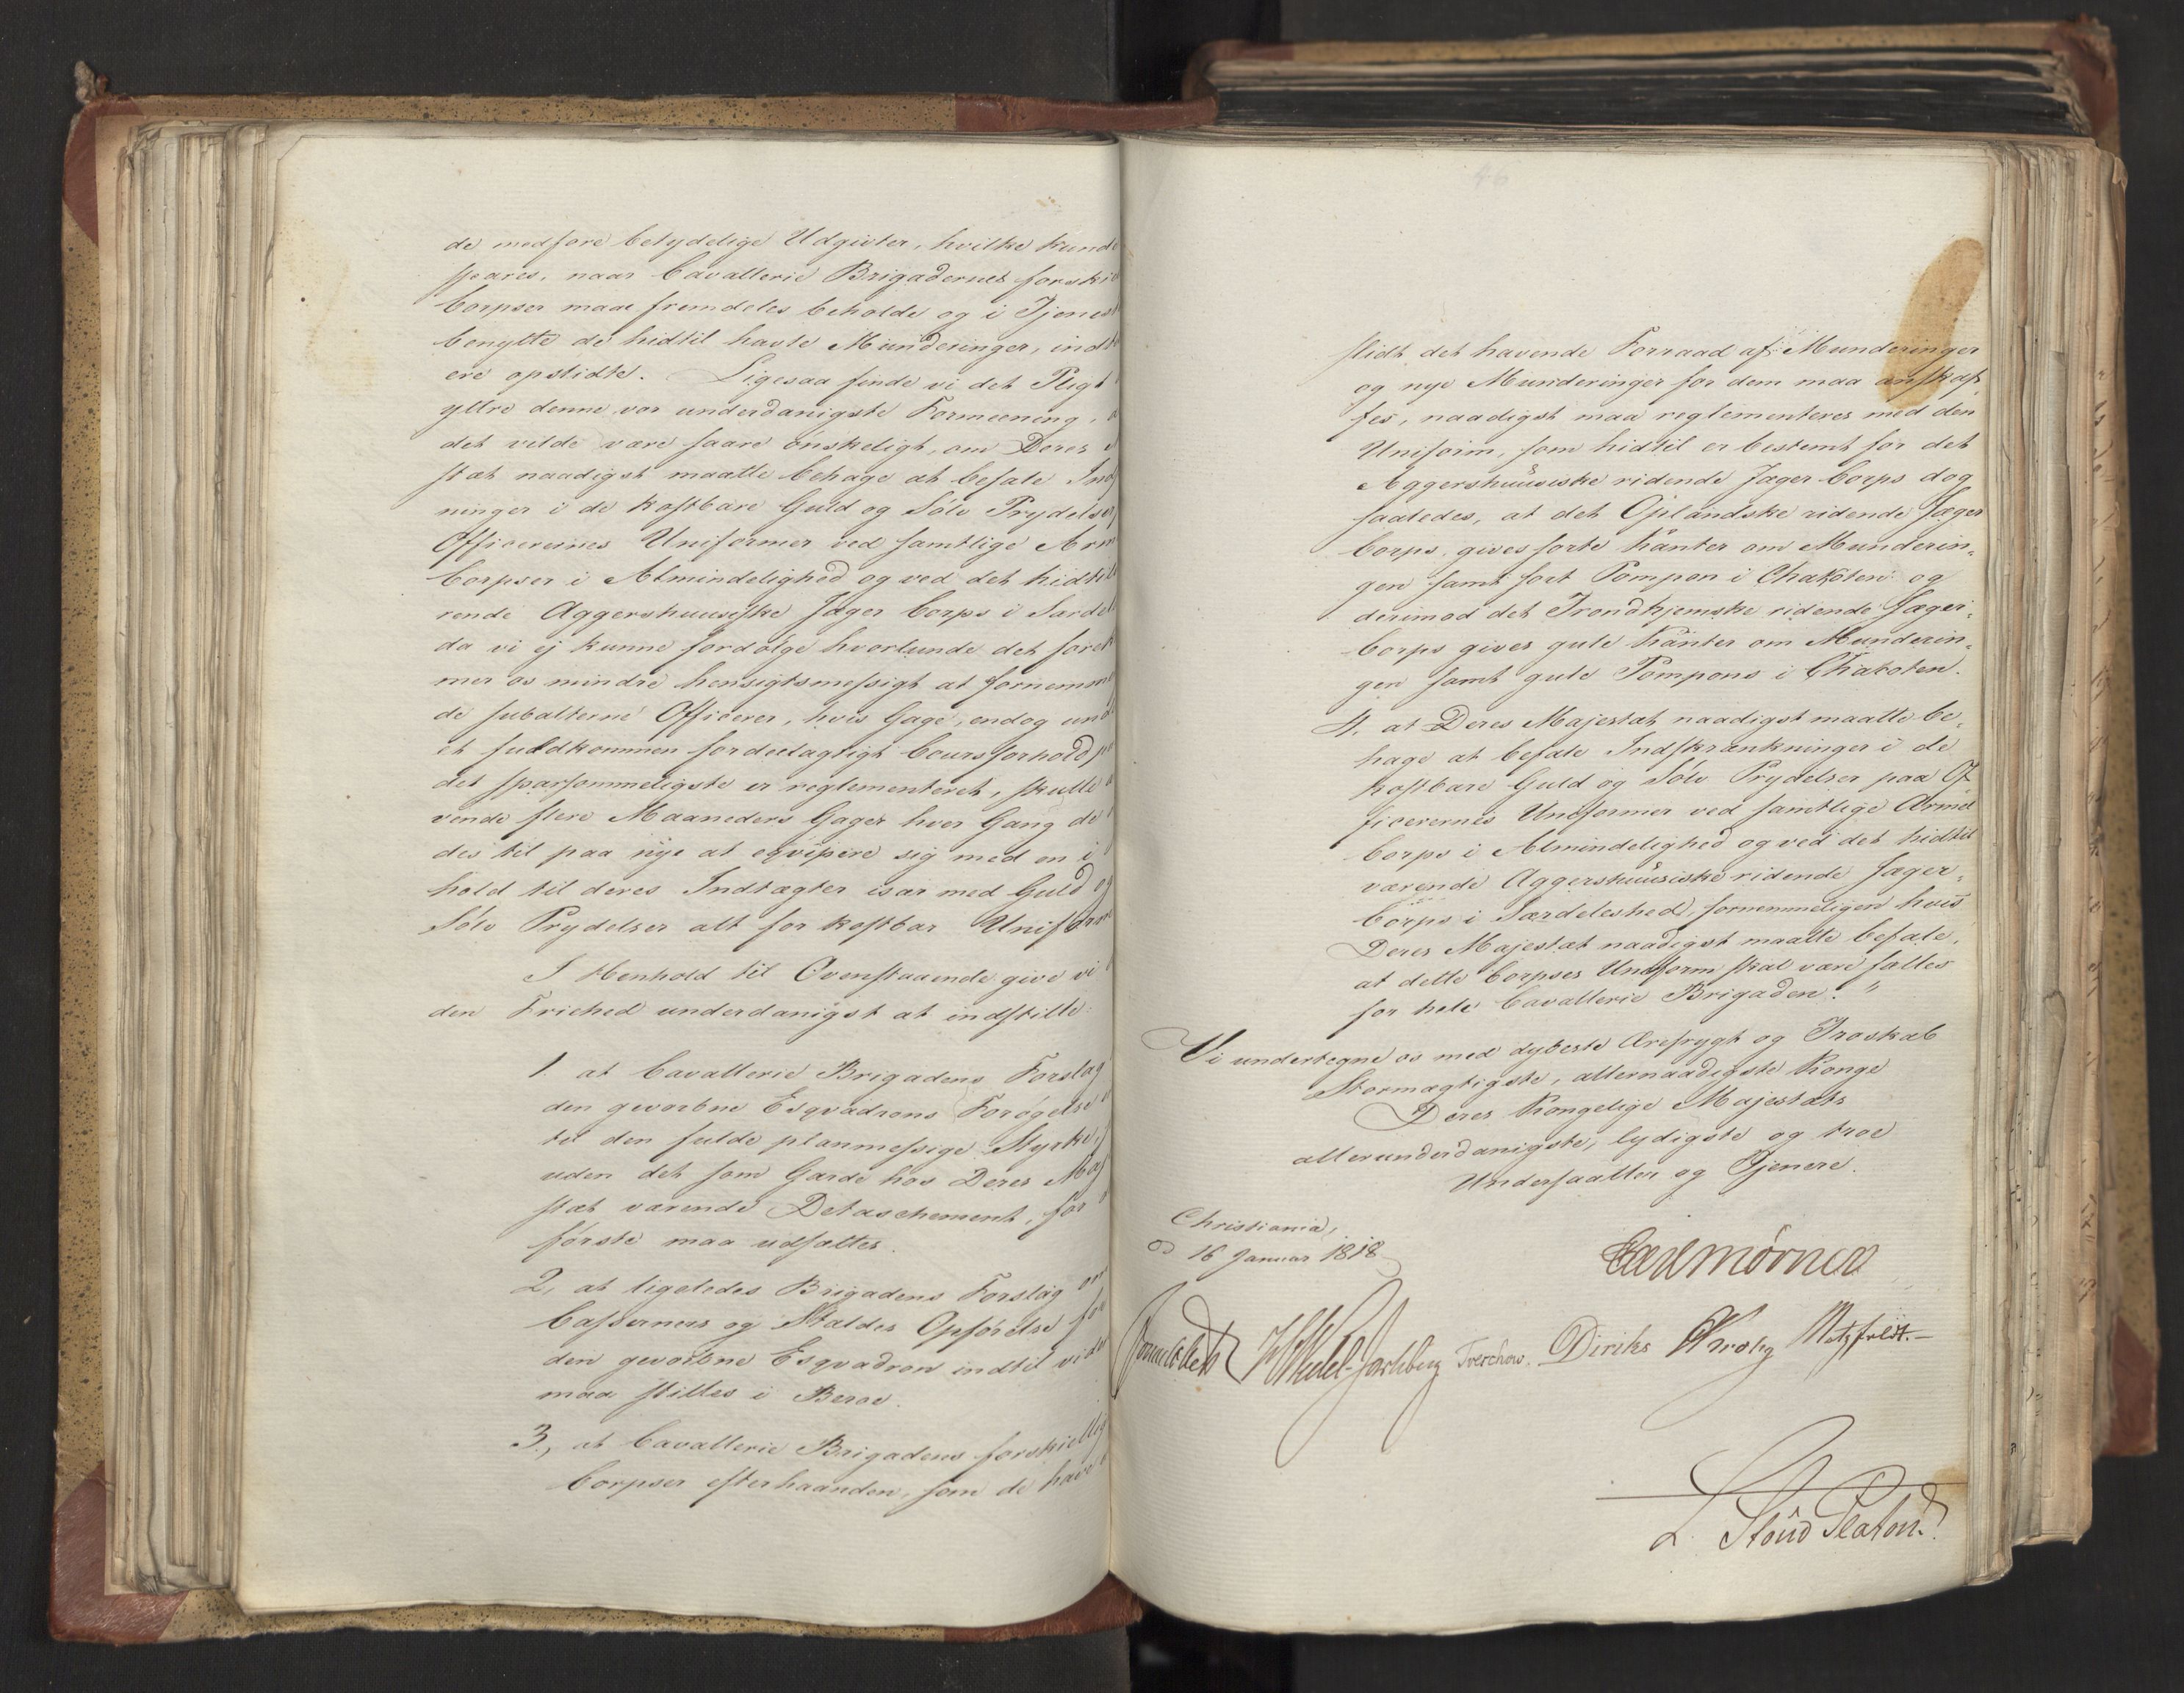 de medføre betydelige Udgivter, hvilke kunde
spares, naar Cavallerie Brigadernes forskie
Corpser maae fremdeles beholde og i Tjenest
benytte de hidtil havte Munderinger, indt
ere opslidte. Ligesaa finde vi det Pligt
yttre denne vor underdanigste Formeening, a
det vilde være saare ønskeligt, om Deres
stæt naadigst maatte behage at befale Ind
ninger i de kostbare Guld og Sölv Prydelser
Officerernes Uniformer ved samtlige Arm
Corpser i Almindelighed og ved det hidtil
rende Aggershuusiske Jæger Corps i Særdel
da vi ej kunne fordölge hvorlunde det forek
mer os mindre hensigtsmessigt at fornemme
de subalterne Officerer, hvis Gage, endog und
et fuldkommen fordeelagtigt Coursforhold p
det sparsommeligste er reglementeret, skulle
vende flere Maaneders Gager hver Gang de
des til paa nye at eqvipere sig med en i
hold til deres Indtægter især med Guld og
Sölv Prydelser alt for kostbar Uniform
I Henhold til Ovenstaaende give vi
den Friehed underdanigst at indstille:
1. at Cavallerie Brigadens Forslag
den gevorbne Esqvadrons Forøgelse
til den fulde planmessige Styrke,
uden det som Garde hos Deres Maj
stæt værende Detaschement, for
förste maa udsættes.
2, at ligeledes Brigadens Forslag om
Casserners og Staldes Opførelse for
den gevorbne Esqvadron indtil vide
maa stilles i Beroe.
3, at Cavallerie Brigadens forskiellig
Corpser efterhaanden, som de have
46
slidt det havende Forraad af Munderinger
og nye Munderinger for dem maa anskaf
fes, naadigst maa reglementeres med den
Uniform, som hidtil er bestemt for det
Aggershuusiske ridende Jæger Corps dog
saaledes, at det Oplandske ridende Jæger
Corps, gives sorte Kanter om Munderin-
gen samt sort Pompon i Chakoten og
derimod det Trondhjemske ridende Jæger-
Corps gives gule Kanter om Munderin-
gen samt gule Pompons i Chakoten.
4, at Deres Majestæt naadigst maatte be-
hage at befale Indskrænkninger i de
kostbare Guld og Sölv Prydelser paa Of
ficerernes Uniformer ved samtlige Armee
Corps i Almindelighed og ved det hidtil
værende Aggershuusiske ridende Jæger-
Corps i Særdeleshed, fornemmeligen hvis
Deres Majestæt naadigst maatte befale,
at dette Corpses Uniform skal være fælles
for hele Cavallerie Brigaden."
Vi undertegne os med dybeste Ærefrygt og Troskab
Stormægtigste, allernaadigste Konge
Deres Kongelige Majestæts
allerunderdanigste, lydigste og troe
Undersaatter og Tjenere.
Christiania,
16 Januar 1818
Carl Mörner
Sommerhielm HWedel-Jarlsberg Treschow. Diriks Krohg Motzfeldt.
L. Stoud Platou